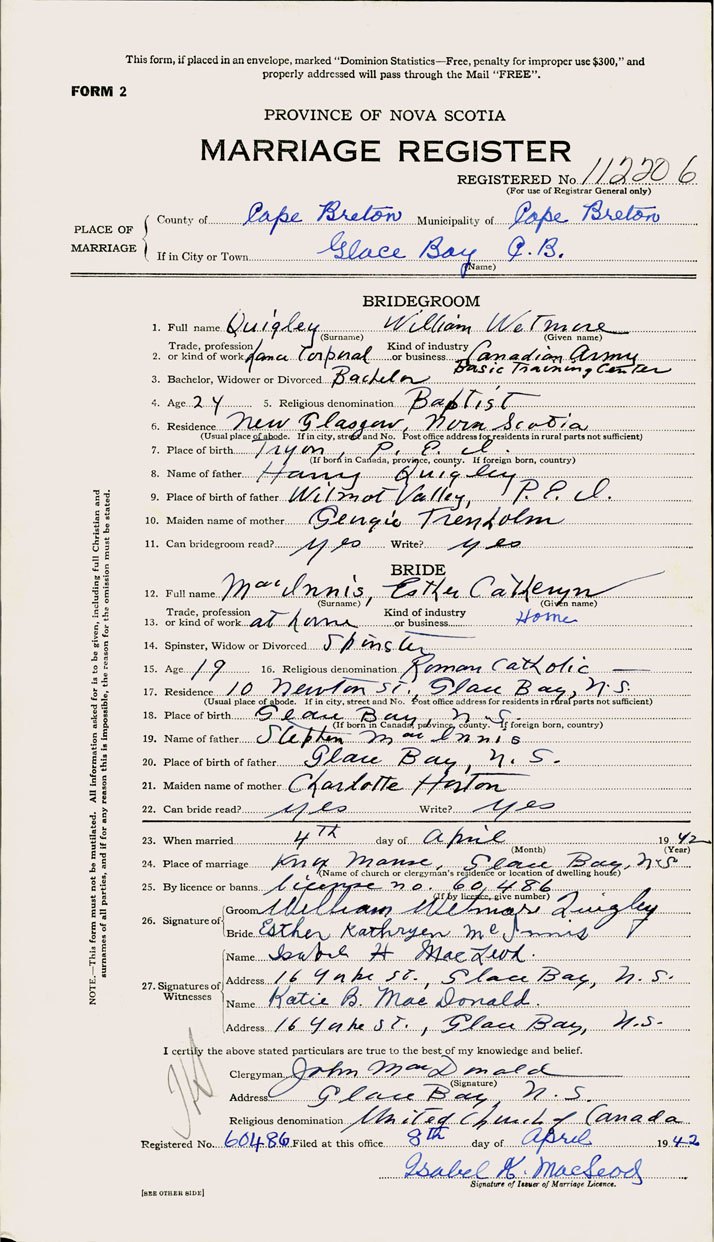 This form, if placed in an envelope, marked "Dominion Statistics—Free, penalty for improper use $300," and
properly addressed will pass through the Mail "FREE".
FORM 2
PROVINCE OF NOVA SCOTIA
MARRIAGE REGISTER
REGISTERED No. 112206
(For use of Registrar General only)
PLACE OF MARRIAGE
County of Cape Breton Municipality of Cape Breton
If in City or Town Glace Bay C.B.
(Name)
BRIDEGROOM
1. Full name Quigley William Wetmore
(Surname) (Given name)
2. Trade, profession or kind of work Lance Corporal Kind of industry or business Canadian Army
Basic Training Center
3. Bachelor, Widower or Divorced Bachelor
4. Age 24 5. Religious denomination Baptist
6. Residence New Glasgow, Nova Scotia
(Usual place of abode. If in city, street and No. Post office address for residents in rural parts not sufficient)
7. Place of birth Tryon, P. E. I.
(If born in Canada, province, county. If foreign born, country)
8. Name of father Harry Quigley
9. Place of birth of father Wilmot Valley, P.E.I.
10. Maiden name of mother Georgie Trenholm
11. Can bridegroom read? yes Write? yes
BRIDE
12. Full name MacInnis, Esther Catheryn
(Surname) (Given name)
13. Trade, profession or kind of work at home Kind of industry or business Home
14. Spinster, Widow or Divorced Spinster
15. Age 19 16. Religious denomination Roman Catholic
17. Residence 10 Newton St., Glace Bay, N.S.
(Usual place of abode. If in city, street and No. Post office address for residents in rural parts not sufficient)
18. Place of birth Glace Bay, N. S.
(If born in Canada, province, county. If foreign born, country)
19. Name of father Stephen MacInnis
20. Place of birth of father Glace Bay, N. S.
21. Maiden name of mother Charlotte Horton
22. Can bride read? yes Write? yes
23. When married 4th day of April 1942
(Month) (Year)
24. Place of marriage Knox Manse, Glace Bay, N.S
(Name of church or clergyman's residence or location of dwelling house)
25. By licence or banns license no. 60,486
(If by licence, give number)
26. Signature of
Groom William Wetmore Quigley
Bride Esther Kathryen McInnis
27. Signatures of Witnesses
Name Isabel H MacLeod.
Address 16 Yorke St., Glace Bay, N. S.
Name Katie B. MacDonald.
Address 16 Yorke St., Glace Bay, N.S.
I certify the above stated particulars are true to the best of my knowledge and belief.
Clergyman John MacDonald
(Signature)
Address Glace Bay, N. S.
Religious denomination United Church of Canada
Registered No. 60486 Filed at this office 8th day of April 1942
Isabel K. MacLeod
Signature of Issuer of Marriage Licence.
[SEE OTHER SIDE]
NOTE.—This form must not be mutilated. All information asked for is to be given, including full Christian and
surnames of all parties, and if for any reason this is impossible, the reason for the omission must be stated.